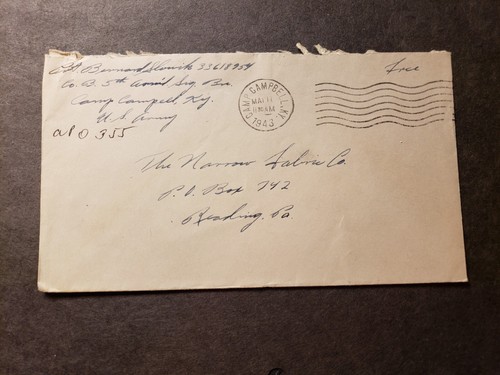 Bernard 33618954 Free
Co. B. 5th Armd Sig Bn.
Camp Campbell, Ky.
US Army
APO 355
CAMP CAMPBELL, KY.
MAR 11
AM
1943
The Narrow Fabric Co.
P.O. Box 742
Reading, Pa